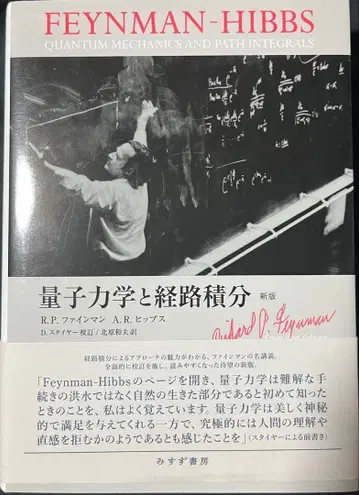 FEYNMAN-HIBBS
QUANTUM MECHANICS AND PATH INTEGRALS
量子力学と経路積分 新版
R.P.ファインマン A.R.ヒッブス
D.スタイヤー校訂/北原和夫訳
Richard P. Feynman
経路積分によるアプローチの魅力がわかる、ファインマンの名講義。
全面的に校訂を施し、読みやすくなった待望の新版。
「Feynman-Hibbsのページを開き、量子力学は難解な手
続きの洪水ではなく自然の生きた部分であると初めて知っ
たときのことを、私はよく覚えています。量子力学は美しく神秘
的で満足を与えてくれる一方で、究極的には人間の理解や
直感を拒むかのようであるとも感じたことを」(スタイヤーによる前書き)
みすず書房